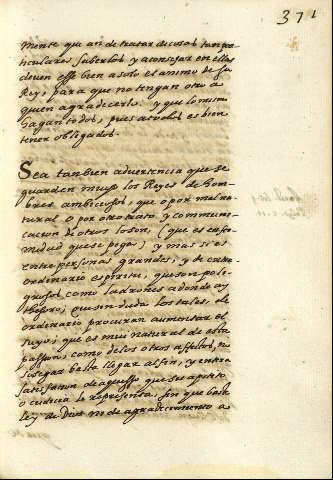 371
mente que an de tratar de cosas tan par-
ticulares saberlos y aconsejar en ellas
deuen esse bien a solo el animo de su
Rey, para que no tengan otro a
quien agradecerlo y que lo mismo
hagan todos, pues a todos es bien
tener obligados.
Sea tanbien aduertencia que se
guarden mucho los Reyes de hom-
bres ambiciosos, que o por su na-
tural o por otro trato y communi-
cacion de otros lo son, (que es enfer-
midad que se pega) y mas si es
entre personas grandes, y de extra-
ordinario espiritu, que son peli-
grosos como ladrones adonde ay
thesoro; que sin duda los tales, de
ordinario procuran aumentar el
suyo, que es mui natural de esta
passion, como de los otros affectos, no
sosegar hasta llegar al fin, y entera
satisfacion de aquello que su apetito
o cudicia le representa, sin que baste
ley de Dios ni de agradecimiento a